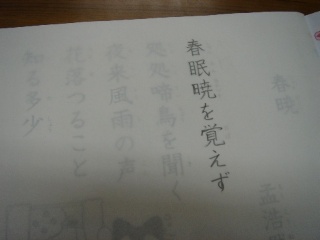 春暁
孟浩
春眠暁を覚えず
処処啼鳥を聞く
夜来風雨の声
花落つること
知る多少